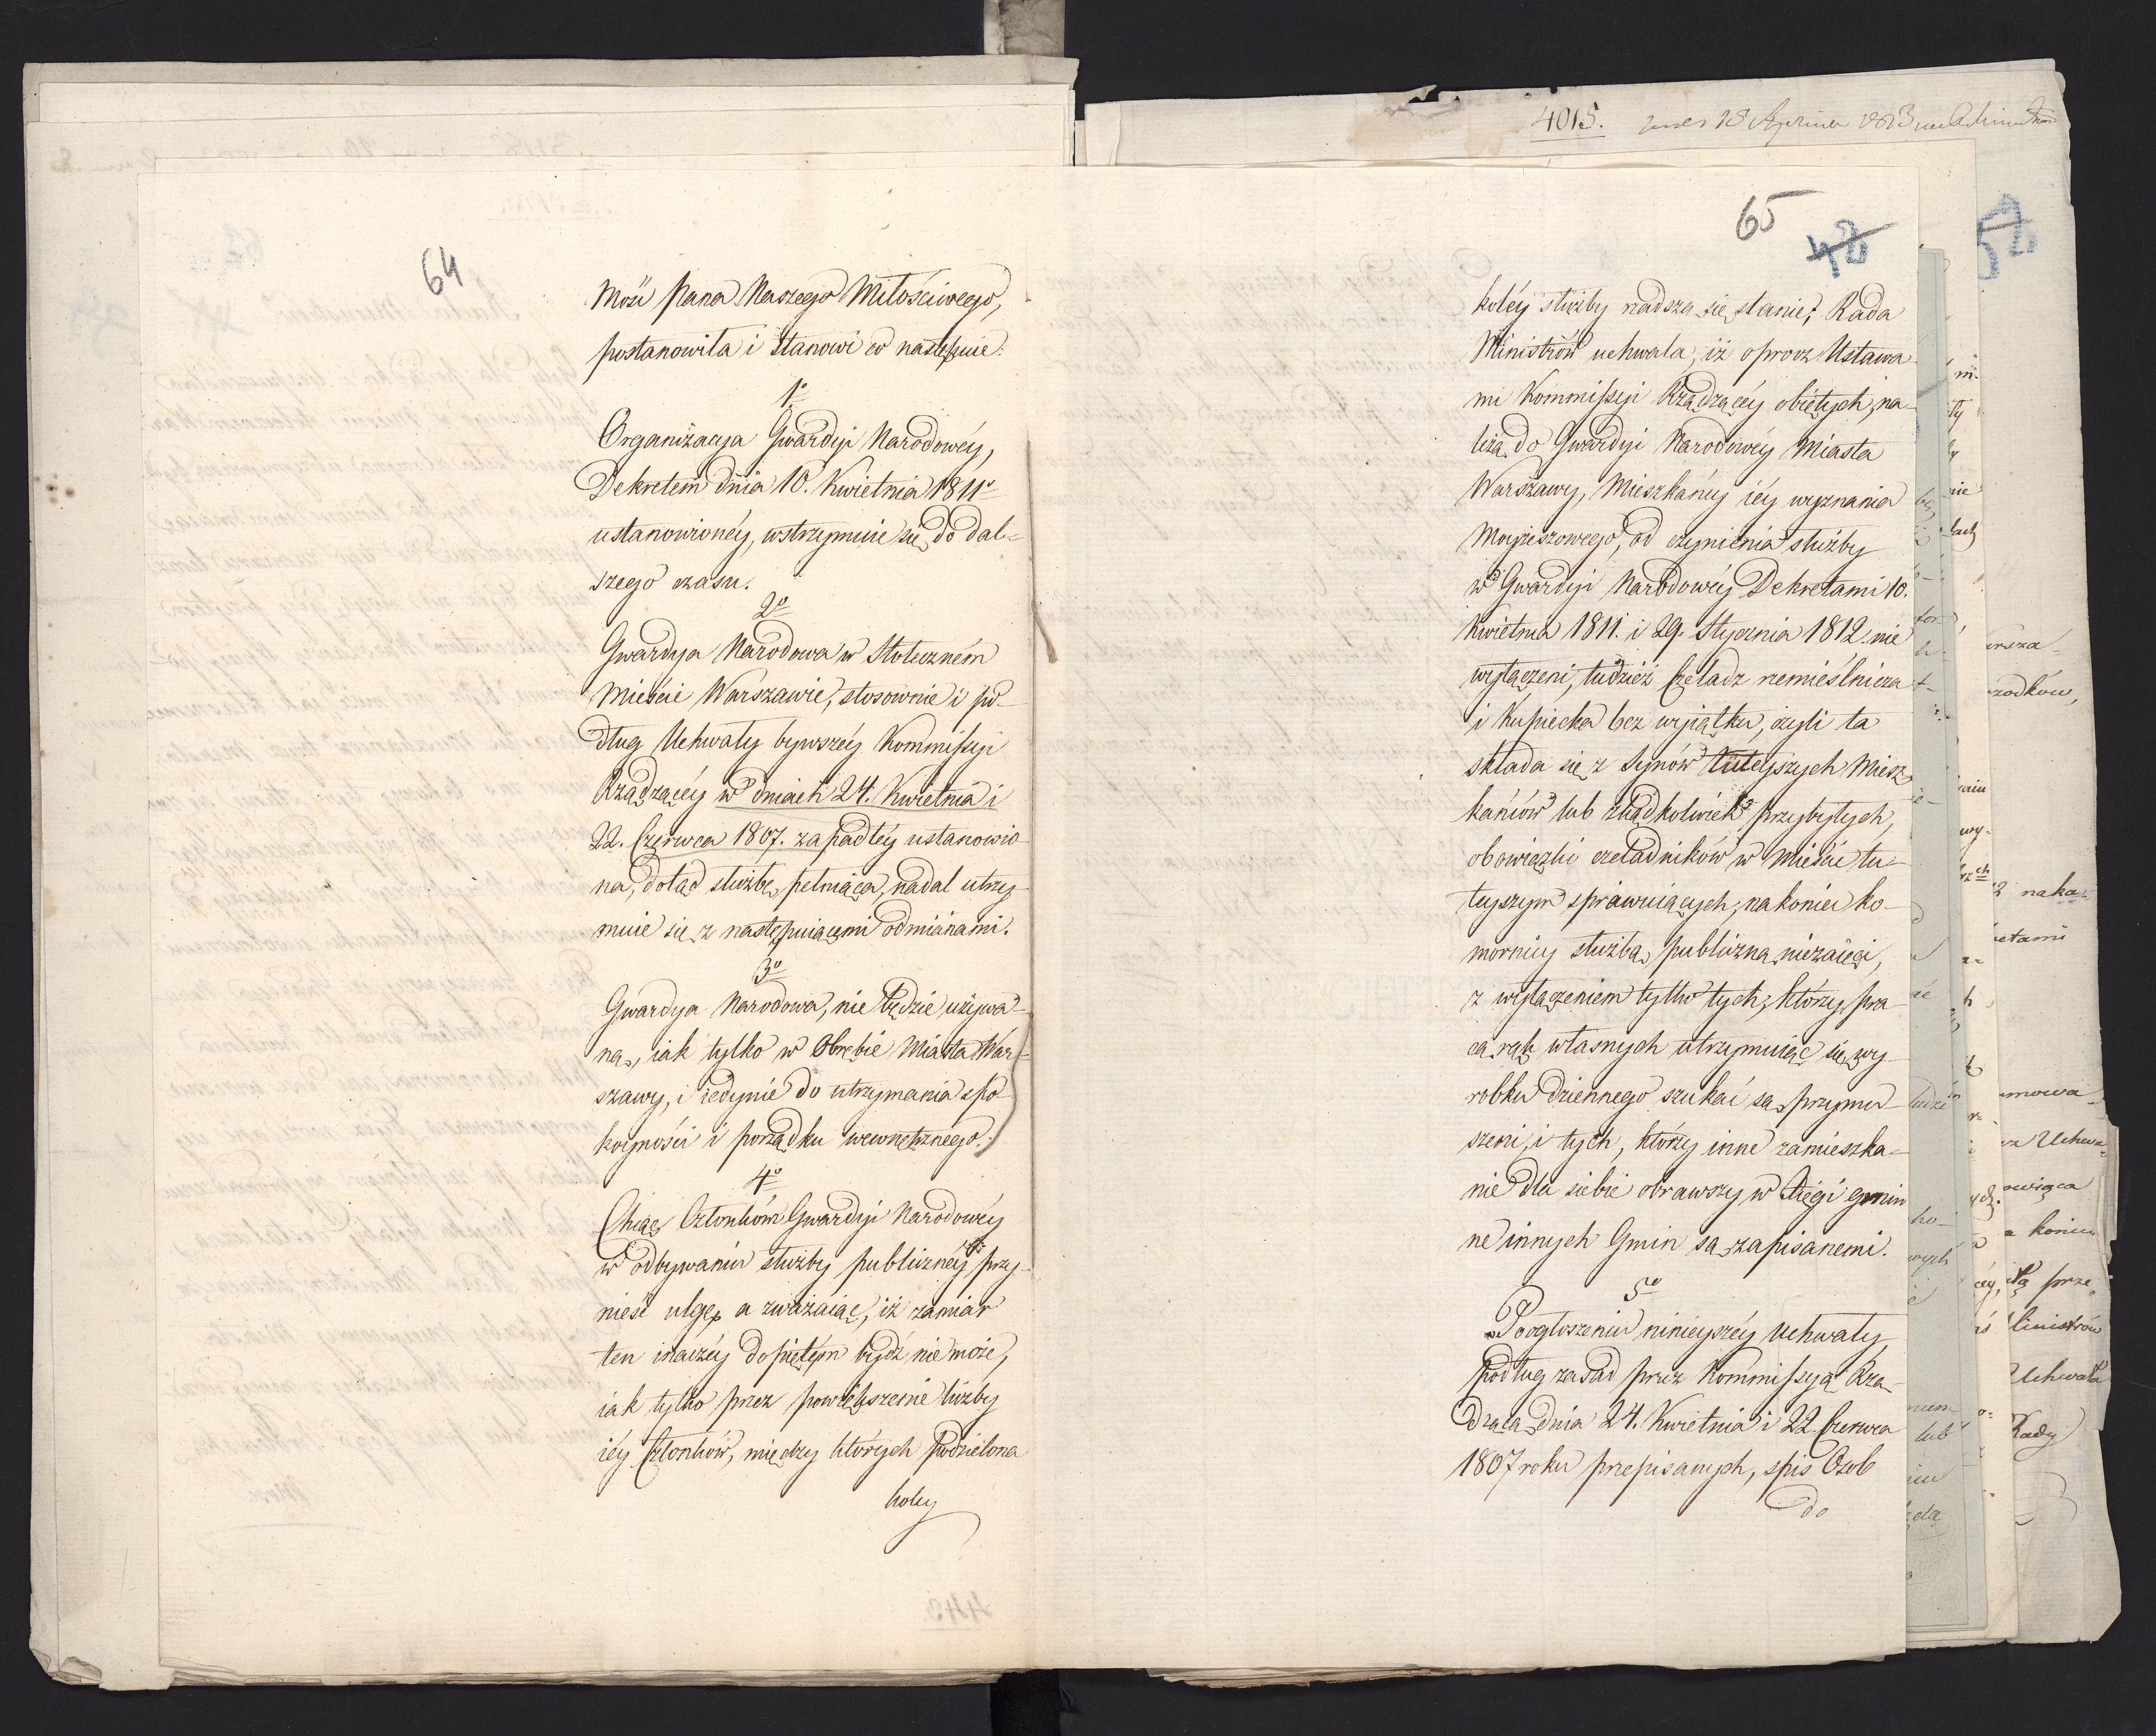 64
Mośći Pana Naszego Miłościwego,
postanowiła i stanowi co następuie:
1º
Organizacya Gwardyi Narodowéy,
Dekretem dnia 10. Kwietnia 1811º
ustanowionéy, wstrzymuie się do dal-
szego czasu.
2º
Gwardya Narodowa w Stołeczném
Mieście Warszawie, stosownie i po-
dług Uchwały bywszéy Kommissyi
Rządzącéy w dniach 24. Kwietnia i
22. Czerwca 1807. zapadłéy ustanowio-
na, dotąd służbę pełniąca, nadal utrzy-
muie się z następuiącemi odmianami.
3º
Gwardya Narodowa, nie będzie używa-
ną, iak tylko w Obrębie Miasta War-
szawy, i iedynie do utrzymania spo-
koyności i porządku wewnętrznego.
4º
Chcąc Członkóm Gwardyi Narodowéy
w odbywaniu służby publicznéy przy-
nieść ulgę, a zważaiąc, iż zamiar
ten inaczéy dopiętym bydź nie może,
iak tylko przez powiększenie liczby
iéy Członków, między których podzielona
koley
4015.
65
42
koléy służby rzadszą się stanie; Rada
Ministrów uchwala, iż oprócz Ustawa-
mi Kommissyi Rządzącéy obiętych, na-
leżą do Gwardyi Narodowéy Miasta
Warszawy, Mieszkańcy iéy wyznania
Moyżeszowego, od czynienia służby
w Gwardyi Narodowéy Dekretami 10.
Kwietnia 1811. i 29. Stycznia 1812. nie
wyłączeni, tudzież Czeladz rzemieślnicza
i Kupiecka bez wyiątku, czyli ta
składa się z Synów tuteyszych Miesz-
kańców lub zkądkolwiek przybyłych,
obowiązki czeladników w Mieście tu-
teyszym sprawuiących, nakoniec ko-
mornicy służbą publiczną niezaięci,
z wyłączeniem tylko tych, którzy pra-
cą rąk własnych utrzymuiąc się wy-
robku dziennego szukać są przymu-
szeni, i tych, którzy inne zamieszka-
nie dla siebie obrawszy w Xięgi gmin-
ne innych Gmin są zapisanemi.
5º
Po ogłoszeniu ninieyszéy Uchwały,
podług zasad przez Kommissyą Rzą-
dzącą dnia 24. Kwietnia i 22. Czerwca
1807 roku przepisanych, spis Osób
do